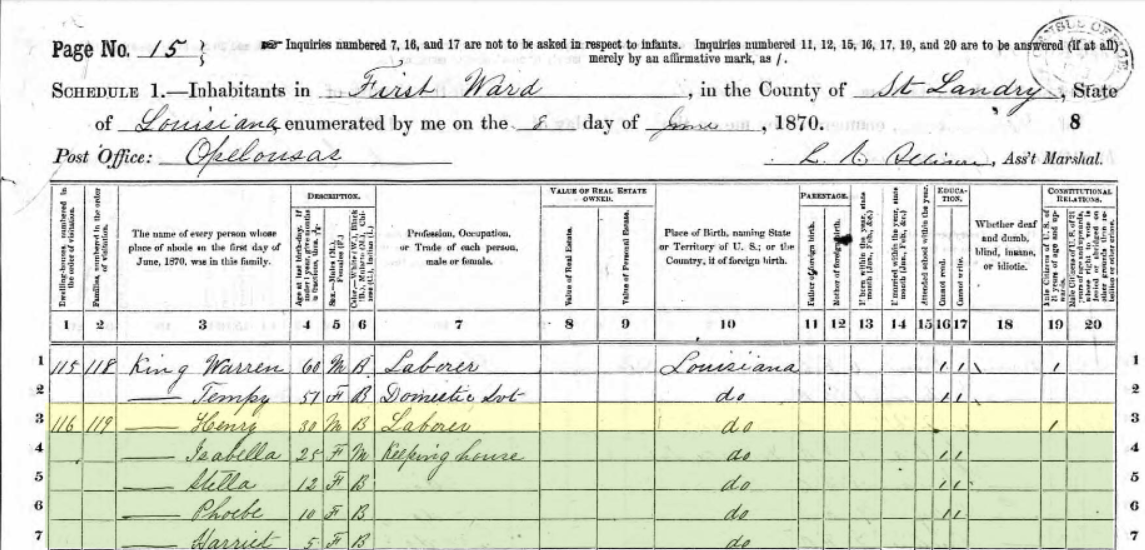 Page No. 15
Inquiries numbered 7, 16, and 17 are not to be asked in respect to infants. Inquiries numbered 11, 12, 15, 16, 17, 19, and 20 are to be answered (if at all)
merely by an affirmative mark, as /.
SCHEDULE 1.—Inhabitants in First Ward, in the County of St Landry, State
of Louisiana, enumerated by me on the 8 day of June, 1870. 8
Post Office: Opelousas L. A., Ass't Marshal.
Dwelling-houses, numbered in the order of visitation.
Families, numbered in the order of visitation.
The name of every person whose place of abode on the first day of June, 1870, was in this family.
DESCRIPTION.
Age at last birth-day. If under 1 year, give months in fractions, thus,
Sex.—Males (M.), Females (F.)
Color.—White (W.), Black (B.), Mulatto (M.), Chinese (C.), Indian (I.)
Profession, Occupation, or Trade of each person, male or female.
VALUE OF REAL ESTATE OWNED.
Value of Real Estate.
Value of Personal Estate.
Place of Birth, naming State or Territory of U. S.; or the Country, if of foreign birth.
PARENTAGE.
Father of foreign birth.
Mother of foreign birth.
If born within the year, state month (Jan., Feb., &c.)
If married within the year, state month (Jan., Feb., &c.)
Attended school within the year.
EDUCATION.
Cannot read.
Cannot write.
Whether deaf and dumb, blind, insane, or idiotic.
CONSTITUTIONAL RELATIONS.
Male Citizens of U. S. of 21 years of age and upwards.
Male Citizens of U. S. of 21 years of age and upwards, where right to vote is denied or abridged on other grounds than rebellion or other crime.
1 2 3 4 5 6 7 8 9 10 11 12 13 14 15 16 17 18 19 20
1 115 118 King Warren 60 M B Laborer Louisiana / / \ / 1
2 — Tempy 51 F B Domestic Svt do / / 2
3 116 119 — Henry 30 M B Laborer do / 3
4 — Isabella 25 F M Keeping house do / / 4
5 — Stella 12 F B do / / 5
6 — Phoebe 10 F B do / / 6
7 — Harriet 5 F B do 7